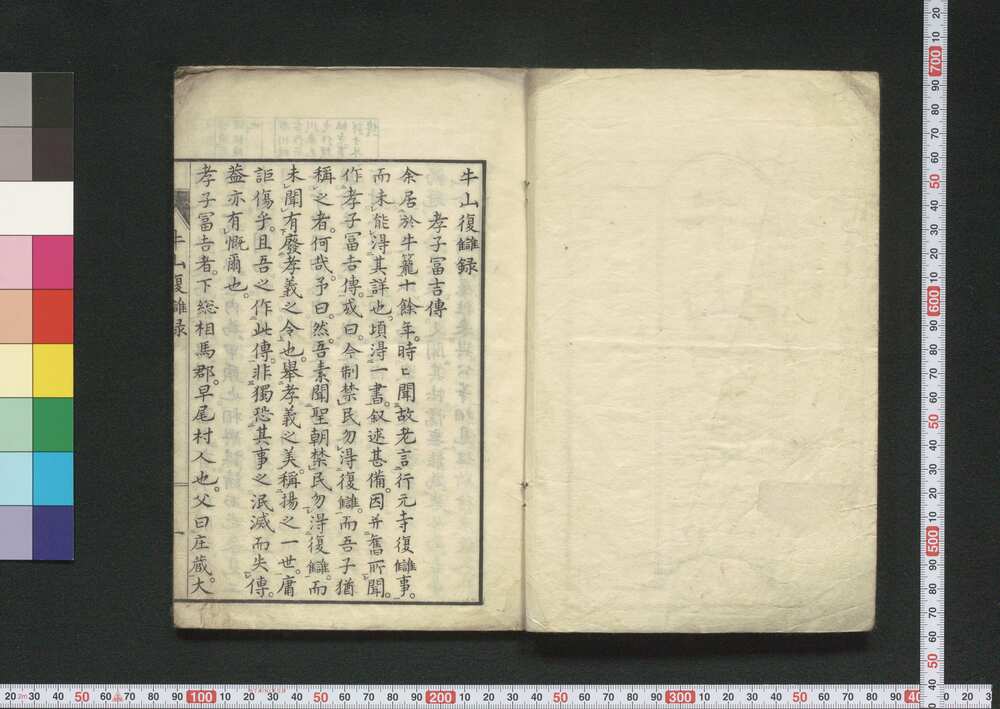 牛山復讎録
孝子冨吉傳
余居於牛籠十餘年。時〻聞故老言行元寺復讎事。
而未能得其詳也。頃得一書。叙述甚備。因并舊所聞。
作孝子冨吉傳。或曰。令制禁民勿得復讎。而吾子猶
稱之者。何哉。予曰。然。吾素聞聖朝禁民勿得復讎。而
未聞有廢孝義之令也。舉孝義之美。稱揚之一世。庸
詎傷乎。且吾之作此傳。非獨恐其事之泯滅而失傳。
蓋亦有慨爾也。
孝子冨吉者。下総相馬郡。早尾村人也。父曰庄蔵。大
牛山復讎録
一